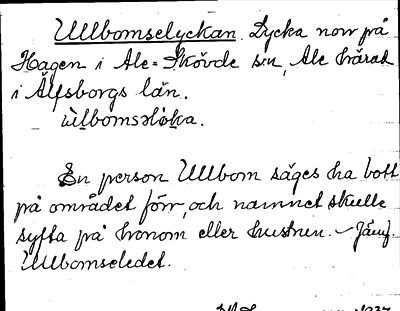 Ullbomselyckan. Lycka norr på
Hagen i Ale-Skövde sn, Ale härad
i Älfsborgs län.
En person Ullbom säges ha bott
på området förr, och namnet skulle
syfta på honom eller hustrun. – Jämf.
Ullbomseledet.